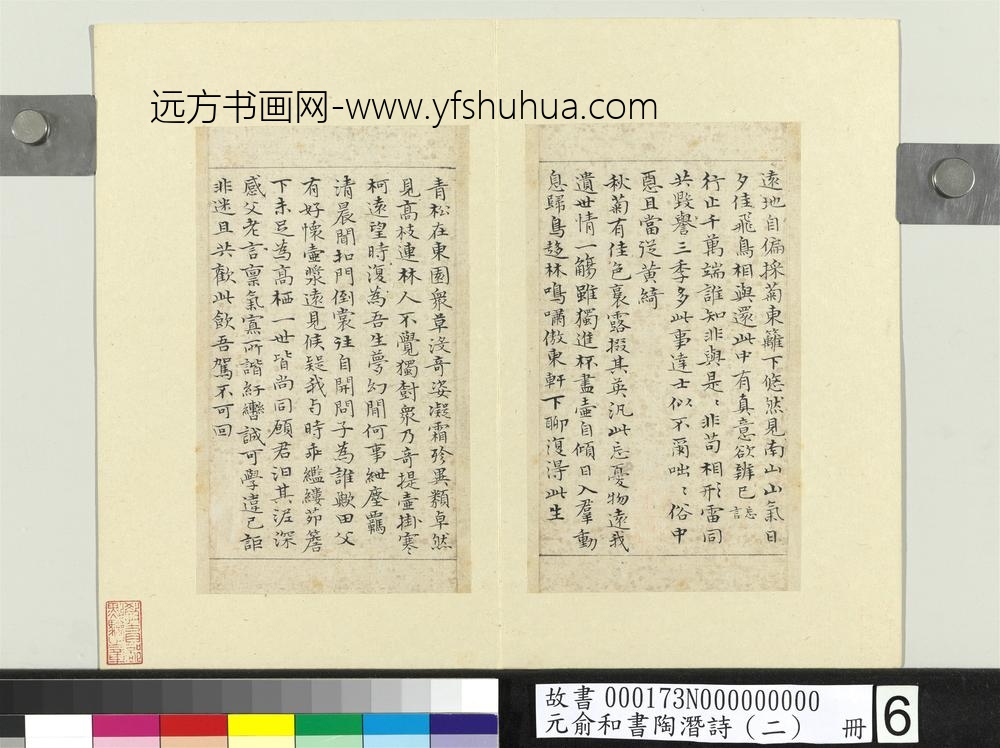 远方书画网-www.yfshuhua.com
遠地自偏採菊東籬下悠然見南山山氣日
夕佳飛鳥相與還此中有真意欲辨已忘言
行止千萬端誰知非與是〻非苟相形雷同
共毀譽三季多此事達士似不爾咄〻俗中
惡且當從黃綺
秋菊有佳色裛露掇其英汎此忘憂物遠我
遺世情一觴雖獨進杯盡壺自傾日入羣動
息歸鳥趍林鳴嘯傲東軒下聊復得此生
青松在東園衆草沒奇姿凝霜殄異類卓然
見高枝連林人不覺獨對衆乃奇提壺掛寒
柯遠望時復為吾生夢幻間何事紲塵羈
清晨聞扣門倒裳往自開問子為誰歟田父
有好懷壺漿遠見候疑我与時乖繿縷茆簷
下未足為高栖一世皆尚同願君汩其泥深
感父老言稟氣寡所諧紆轡誠可學違己詎
非迷且共歡此飲吾駕不可回
故書 000173N000000000
元俞和書陶潛詩（二） 冊
6